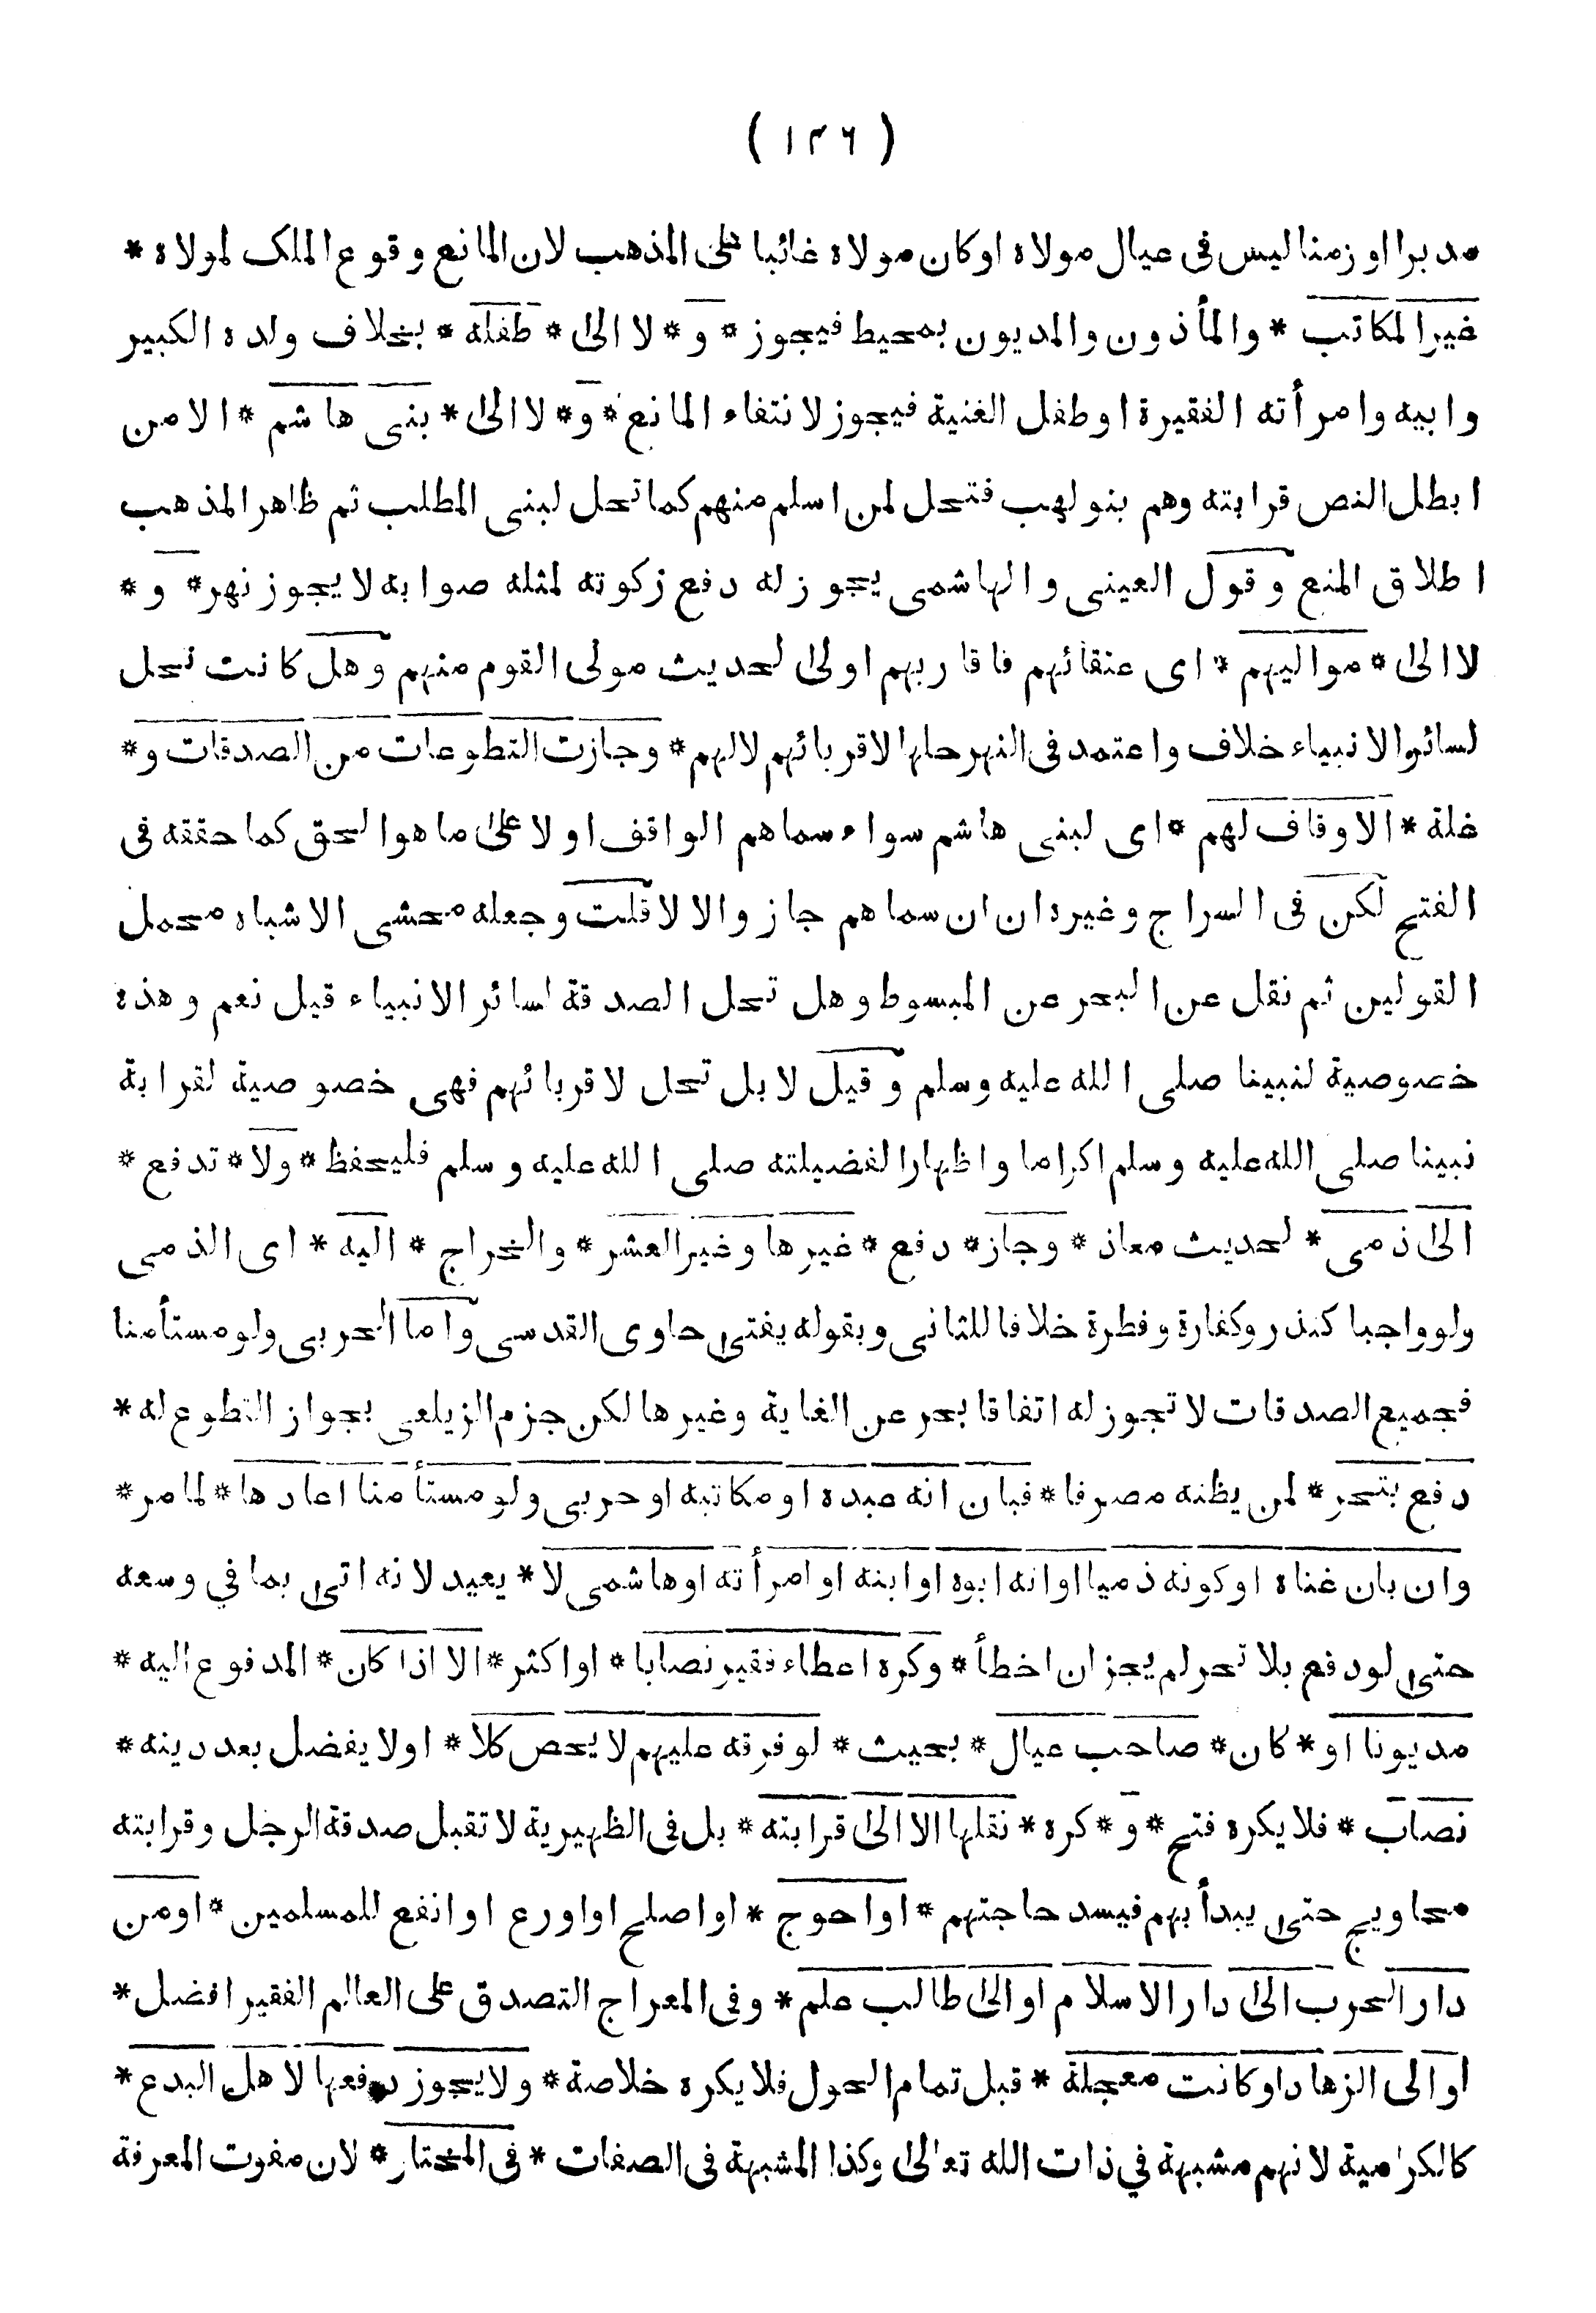 ( ١٣٦ )
مدبرا او زمنا ليس فى عيال مولاه او كان مولاه غائبا على المذهب لان المانع وقوع الملك لمولاه *
غير المكاتب * والمأذون والمديون بمحيط فيجوز * و * لا الى * طفله * بخلاف ولده الكبير
وابيه وامرأته الفقيرة او طفل الغنية فيجوز لانتفاء المانع * و * لا الى * بنى هاشم * الا من
ابطل النص قرابته وهم بنو لهب فتحل لمن اسلم منهم كما تحل لبنى المطلب ثم ظاهر المذهب
اطلاق المنع وقول العينى والهاشمى يجوز له دفع زكوته لمثله صوابه لا يجوز نهر * و *
لا الى * مواليهم * اى عتقائهم فاقاربهم اولى لحديث مولى القوم منهم وهل كانت تحل
لسائر الانبياء خلاف واعتمد فى النهر حلها لاقربائهم لا لهم * وجازت التطوعات من الصدقات و *
غلة * الاوقاف لهم * اى لبنى هاشم سواء سماهم الواقف او لا على ما هو الحق كما حققه فى
الفتح لكن فى السراج وغيره ان ان سماهم جاز والا لا قلت وجعله محشى الاشباه محمل
القولين ثم نقل عن البحر عن المبسوط وهل تحل الصدقة لسائر الانبياء قيل نعم وهذه
خصوصية لنبينا صلى الله عليه وسلم وقيل لا بل تحل لاقربائهم فهى خصوصية لقرابة
نبينا صلى الله عليه وسلم اكراما واظهارا لفضيلته صلى الله عليه وسلم فليحفظ * ولا * تدفع *
الى ذمى * لحديث معاذ * وجاز * دفع * غيرها وغير العشر * والخراج * اليه * اى الذمى
ولو واجبا كنذر وكفارة وفطرة خلافا للثانى وبقوله يفتى حاوى القدسى واما الحربى ولو مستأمنا
فجميع الصدقات لا تجوز له اتفاقا بحر عن الغاية وغيرها لكن جزم الزيلعى بجواز التطوع له *
دفع بتحر * لمن يظنه مصرفا * فبان انه عبده او مكاتبه او حربى ولو مستأمنا اعادها * لما مر *
وان بان غناه او كونه ذميا او انه ابوه او ابنه او امرأته او هاشمى لا * يعيد لانه اتى بما في وسعه
حتى لو دفع بلا تحر لم يجز ان اخطأ * وكره اعطاء فقير نصابا * او اكثر * الا اذا كان * المدفوع اليه *
مديونا او * كان * صاحب عيال * بحيث * لو فرقه عليهم لا يخص كلا * او لا يفضل بعد دينه *
نصاب * فلا يكره فتح * و * كره * نقلها الا الى قرابته * بل فى الظهيرية لا تقبل صدقة الرجل وقرابته
محاويج حتى يبدأ بهم فيسد حاجتهم * او احوج * او اصلح او اورع او انفع للمسلمين * او من
دار الحرب الى دار الاسلام او الى طالب علم * وفى المعراج التصدق على العالم الفقير افضل *
او الى الزهاد او كانت معجلة * قبل تمام الحول فلا يكره خلاصة * ولا يجوز دفعها لاهل البدع *
كالكرامية لانهم مشبهة في ذات الله تعالى وكذا المشبهة فى الصفات * فى المختار * لان مفوت المعرفة